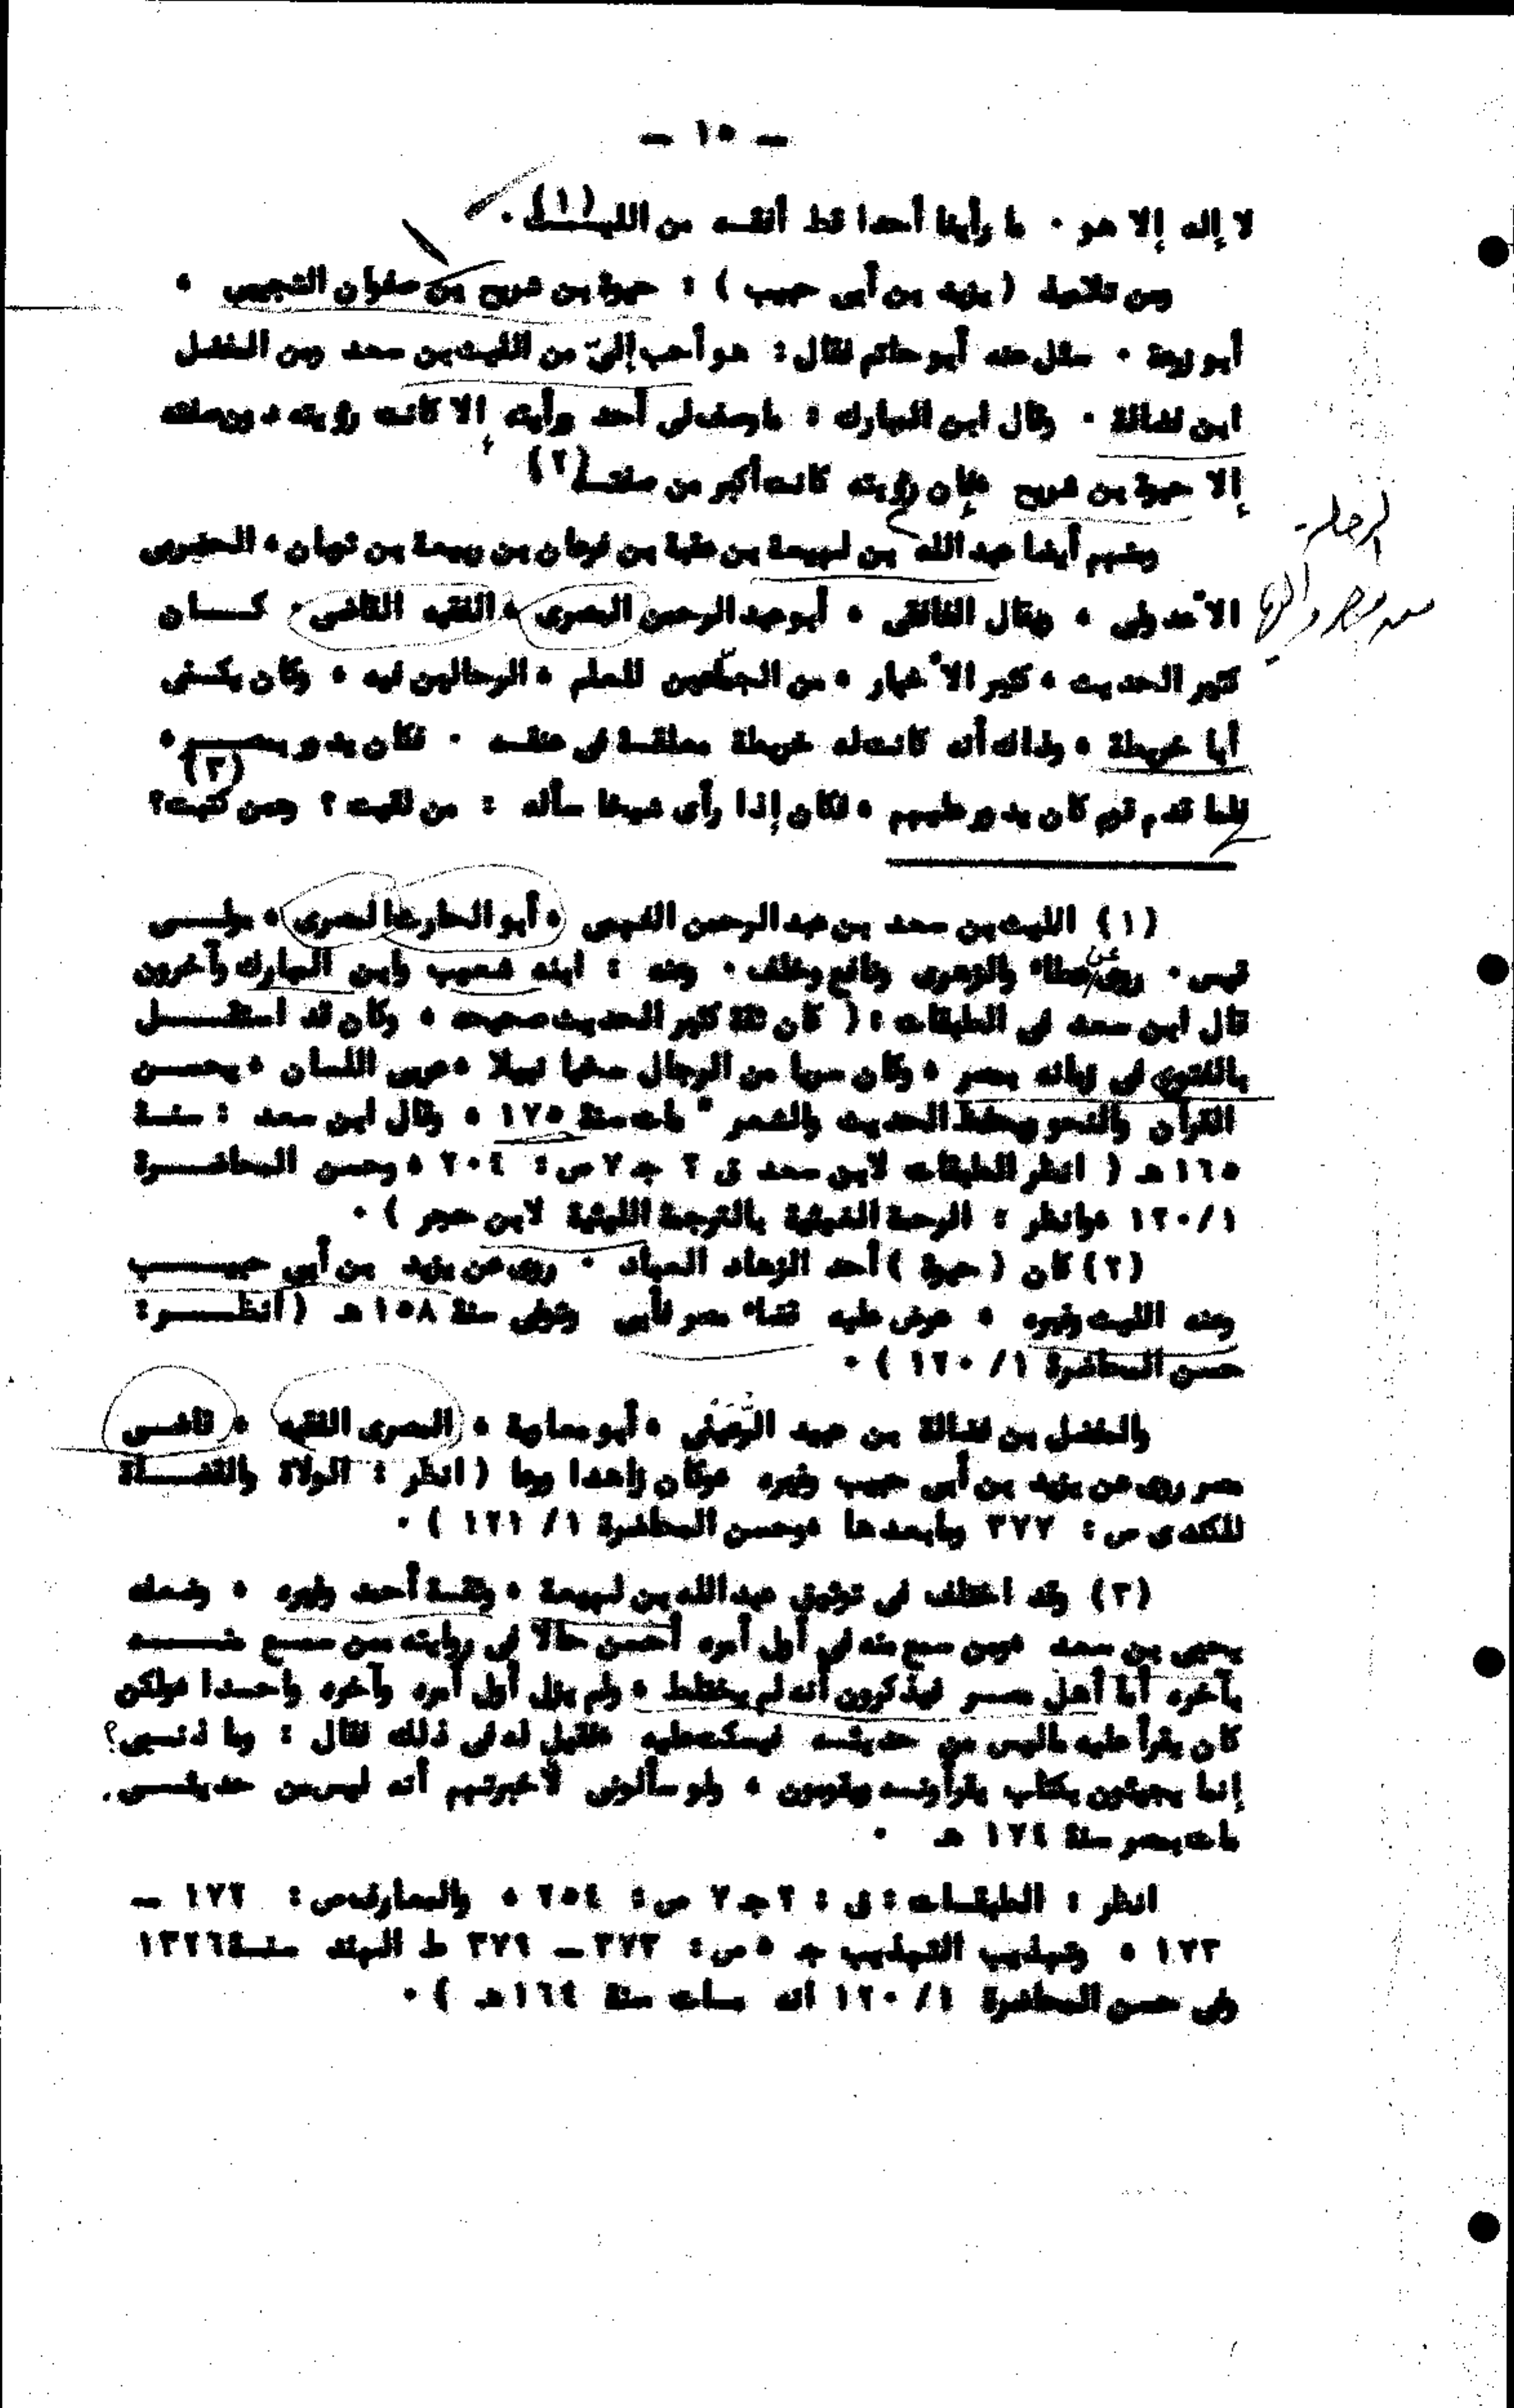 — ١٥ —
لا إله إلا هو ٠ ما رأينا أحدا قط أفقه من الليث (١) ٠
ومن تلاميذ (يزيد بن أبى حبيب) : حيوة بن شريح بن صفوان التجيبى ،
أبو زرعة ٠ سئل عنه أبو حاتم فقال : هو أحب إليّ من الليث بن سعد ومن المفضل
ابن فضالة ٠ وقال ابن المبارك : ما وصف لى أحد ورأيته الا كانت رؤيته دون صفته
إلا حيوة بن شريح فإن رؤيته كانت أكبر من صفته (٢)
ومنهم أيضا عبد الله بن لهيعة بن عقبة بن فرعان بن ربيعة بن ثوبان ، الحضرمى
الأعدولى ، ويقال الغافقى ، أبو عبد الرحمن المصرى ، الفقيه القاضى ٠ كـــان
كثير الحديث ، كثير الأخبار ، من الجمّاعين للعلم ، الرحالين فيه ، وكان يكنى
أبا خريطة ، وذاك أنه كانت له خريطة معلقة فى عنقه ٠ فكان يدور بمصر ،
فلما قدم قوم كان يدور عليهم ، فكان إذا رأى شيخا سأله : من لقيت ؟ وعمن كتبت؟ (٣)
الرحلة
من مصر وإليها
(١) الليث بن سعد بن عبد الرحمن الفهمى ، أبو الحارث المصرى ، مولـــى
قيس ٠ روى عن عطاء والزهرى ونافع وخلف ٠ وعنه : ابنه شعيب وابن المبارك وآخرون
قال ابن سعد فى الطبقات : ( كان ثقة كثير الحديث صحيحه ، وكان قد استقـــل
بالفتوى فى زمانه بمصر ، وكان سريا من الرجال سخيا نبيلا ، عربى اللسان ، يحسن
القرآن والنحو ويحفظ الحديث والشعر " مات سنة ١٧٥ ، وقال ابن سعد : سنة
١٦٥ هـ ( انظر الطبقات لابن سعد ق ٢ جـ ٧ ص : ٢٠٤ ، وحسن المحاضـــرة
١٢٠/١ ، وانظر : الرحمة الغيثية بالترجمة الليثية لابن حجر ) ٠
(٢) كان ( حيوة ) أحد الزهاد العباد ٠ روى عن يزيد بن أبى حبيـــب
وعنه الليث وغيره ، عرض عليه قضاء مصر فأبى وتوفى سنة ١٥٨ هـ ( انظـــر :
حسن المحاضرة ١ / ١٢٠ ) ٠
والمفضل بن فضالة بن عبيد الرعينى ، أبو معاوية ، المصرى الفقيه ، قاضـى
مصر روى عن يزيد بن أبى حبيب وغيره ، وكان زاهدا ورعا ( انظر : الولاة والقضـــاة
للكندى ص : ٣٧٧ وما بعدها ، وحسن المحاضرة ١ / ١٢١ ) ٠
(٣) وقد اختلف فى توثيق عبد الله بن لهيعة ، وثقـه أحمد وغيره ، وضعفه
يحيى بن سعد ، ومن سمع منه فى أول أمره أحسن حالا فى روايته ممن سمع منـــه
بآخره أما أهل مصر فيذكرون أنه لم يختلط ، ولم يزل أول أمره وآخره واحدا ، ولكن
كان يقرأ عليه ماليس من حديثه فيسكت عليه فقيل له فى ذلك فقال : وما ذنبى؟
إنما يجيئون بكتاب يقرأونه ويقومون ، ولو سألونى لأخبرتهم أنه ليس من حديثـــى ٠
مات بمصر سنة ١٧٤ هـ ٠
انظر : الطبقات : ق : ٢ جـ ٧ ص : ٢٥٤ ، والمعارف ص : ١٧٢ —
١٧٣ ، وتهذيب التهذيب جـ ٥ ص : ٣٧٣ — ٣٧٩ ط الهند سنة ١٣٢٦
وفى حسن المحاضرة ١ / ١٢٠ أنه مـات سنة ١٦٤ هـ ) ٠